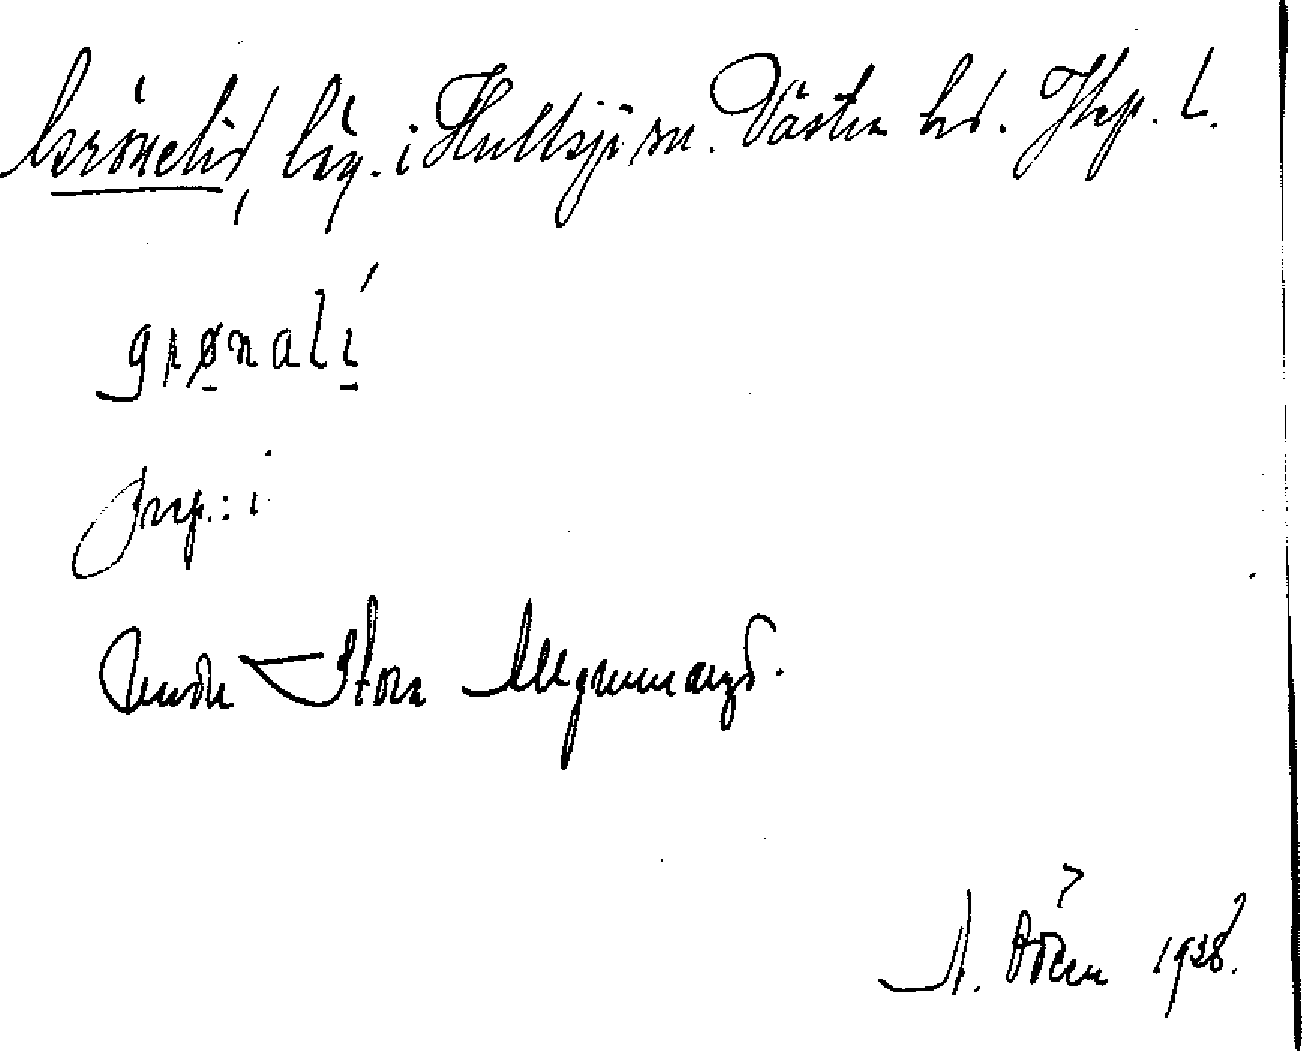 Grönelid, läg. i Hultsjö sn. Västra hd. Jkp. L.
grønalí
prep.: i
Under Stora Ällgunnaryd.
1928.